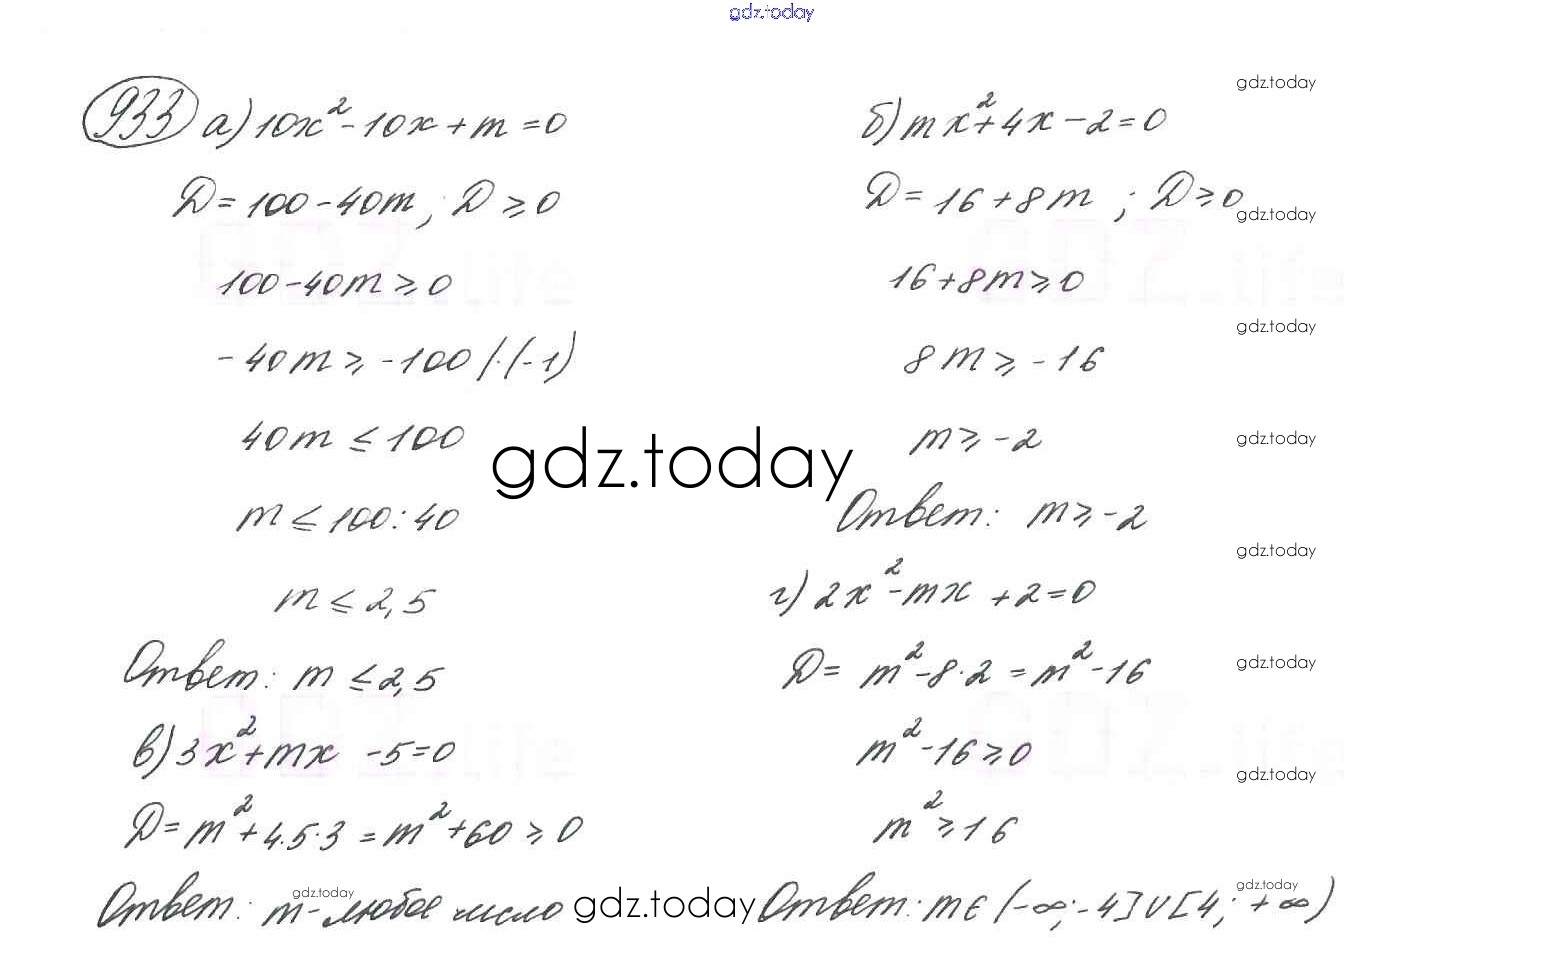 gdz.today
933 а) 10x² - 10x + m = 0
D = 100 - 40m ; D ⩾ 0
100 - 40m ⩾ 0
- 40m ⩾ - 100 /·(-1)
40m ≤ 100
m ≤ 100 : 40
m ≤ 2,5
Ответ: m ≤ 2,5
в) 3x² + mx - 5 = 0
D = m² + 4·5·3 = m² + 60 ⩾ 0
Ответ: m - любое число
б) mx² + 4x - 2 = 0
D = 16 + 8m ; D ⩾ 0
16 + 8m ⩾ 0
8m ⩾ - 16
m ⩾ - 2
Ответ: m ⩾ - 2
г) 2x² - mx + 2 = 0
D = m² - 8·2 = m² - 16
m² - 16 ⩾ 0
m² ⩾ 16
Ответ: m ∈ (-∞; -4] ∪ [4; +∞)
gdz.today
gdz.today
gdz.today
gdz.today
gdz.today
gdz.today
gdz.today
gdz.today
gdz.today
gdz.today
gdz.today